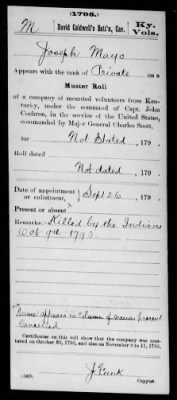 (1793.)
M | David Caldwell's Batt'n, Cav. | Ky. Vols.
Joseph Mayo
Appears with the rank of Private on a
Muster Roll
of a company of mounted volunteers from Ken-
tucky, under the command of Capt. John
Cochran, in the service of the United States,
commanded by Major General Charles Scott,
for Not Stated, 179 .
Roll dated
Not dated, 179 .
Date of appointment
or enlistment, Sept 26, 179 .
Present or absent
Remarks: Killed by the Indians
Oct 9th 1793.
"Name appears in Column of Names Present
Cancelled
Certificates on this roll show that the company was mus-
tered on October 30, 1793, and also in November 9 to 11, 1793.
J Funk
(569) Copyist.